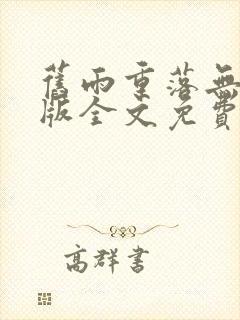 舊雨重落無
版全文免費
高群書